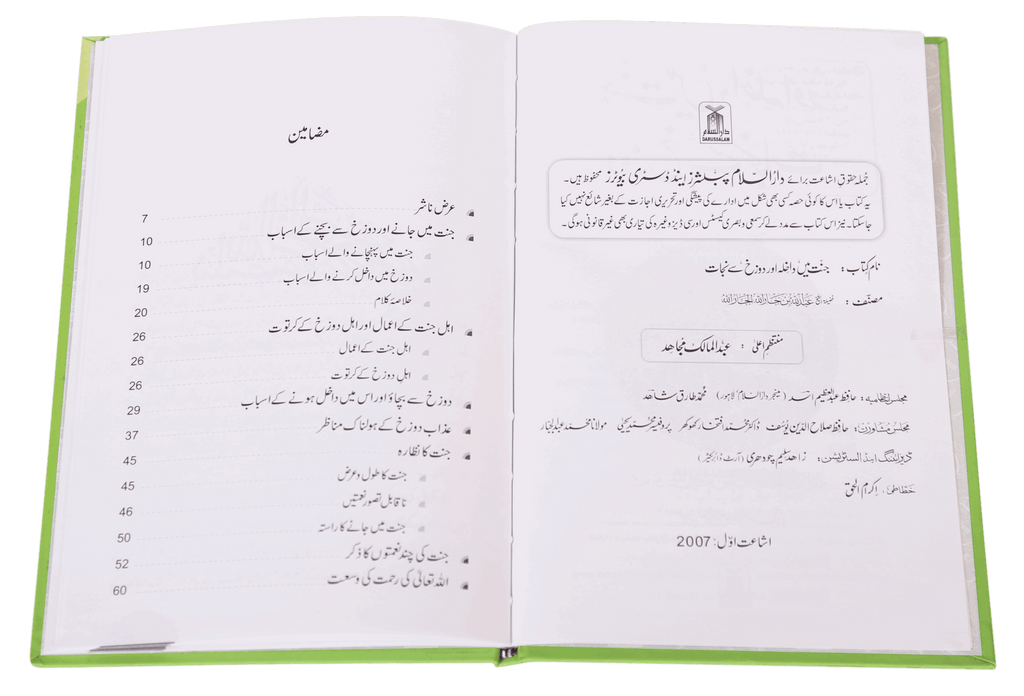 دارالسلام
DARUSSALAM
جُملہ حقوقِ اشاعت برائے دارُالسلام پبلشرز اینڈ ڈسٹری بیوٹرز محفوظ ہیں۔
یہ کتاب یا اس کا کوئی حصہ کسی بھی شکل میں ادارے کی پیشگی اور تحریری اجازت کے بغیر شائع نہیں کیا
جاسکتا۔ نیز اس کتاب سے مدد لے کر سمعی و بصری کیسٹس اور سی ڈیز وغیرہ کی تیاری بھی غیر قانونی ہوگی۔
نام کتاب: جنت میں داخلہ اور دوزخ سے نجات
مصنف: عبداللہ بن جاراللہ الجاراللہ
منتظمِ اعلیٰ: عبدالمالک مجاہد
مجلس انتظامیہ: حافظ عبدالعظیم اسد (مینجر دارالسلام، لاہور) محمد طارق شاہد
مجلسِ مشاورت: حافظ صلاح الدین یوسف ڈاکٹر محمد افتخار کھوکھر پروفیسر محمد یحییٰ مولانا محمد عبدالجبار
ڈیزائننگ اینڈ السٹریشن: زاہد سلیم چودھری (آرٹ ڈائریکٹر)
خطاطی: اکرام الحق
اشاعت اوّل: 2007
مضامین
عرض ناشر 7
جنت میں جانے اور دوزخ سے بچنے کے اسباب 10
جنت میں پہنچانے والے اسباب 10
دوزخ میں داخل کرنے والے اسباب 19
خلاصۂ کلام 20
اہل جنت کے اعمال اور اہل دوزخ کے کرتوت 26
اہل جنت کے اعمال 26
اہل دوزخ کے کرتوت 26
دوزخ سے بچاؤ اور اس میں داخل ہونے کے اسباب 29
عذاب دوزخ کے ہولناک مناظر 37
جنت کا نظارہ 45
جنت کا طول و عرض 45
ناقابل تصور نعمتیں 46
جنت میں جانے کا راستہ 50
جنت کی چند نعمتوں کا ذکر 52
اللہ تعالیٰ کی رحمت کی وسعت 60